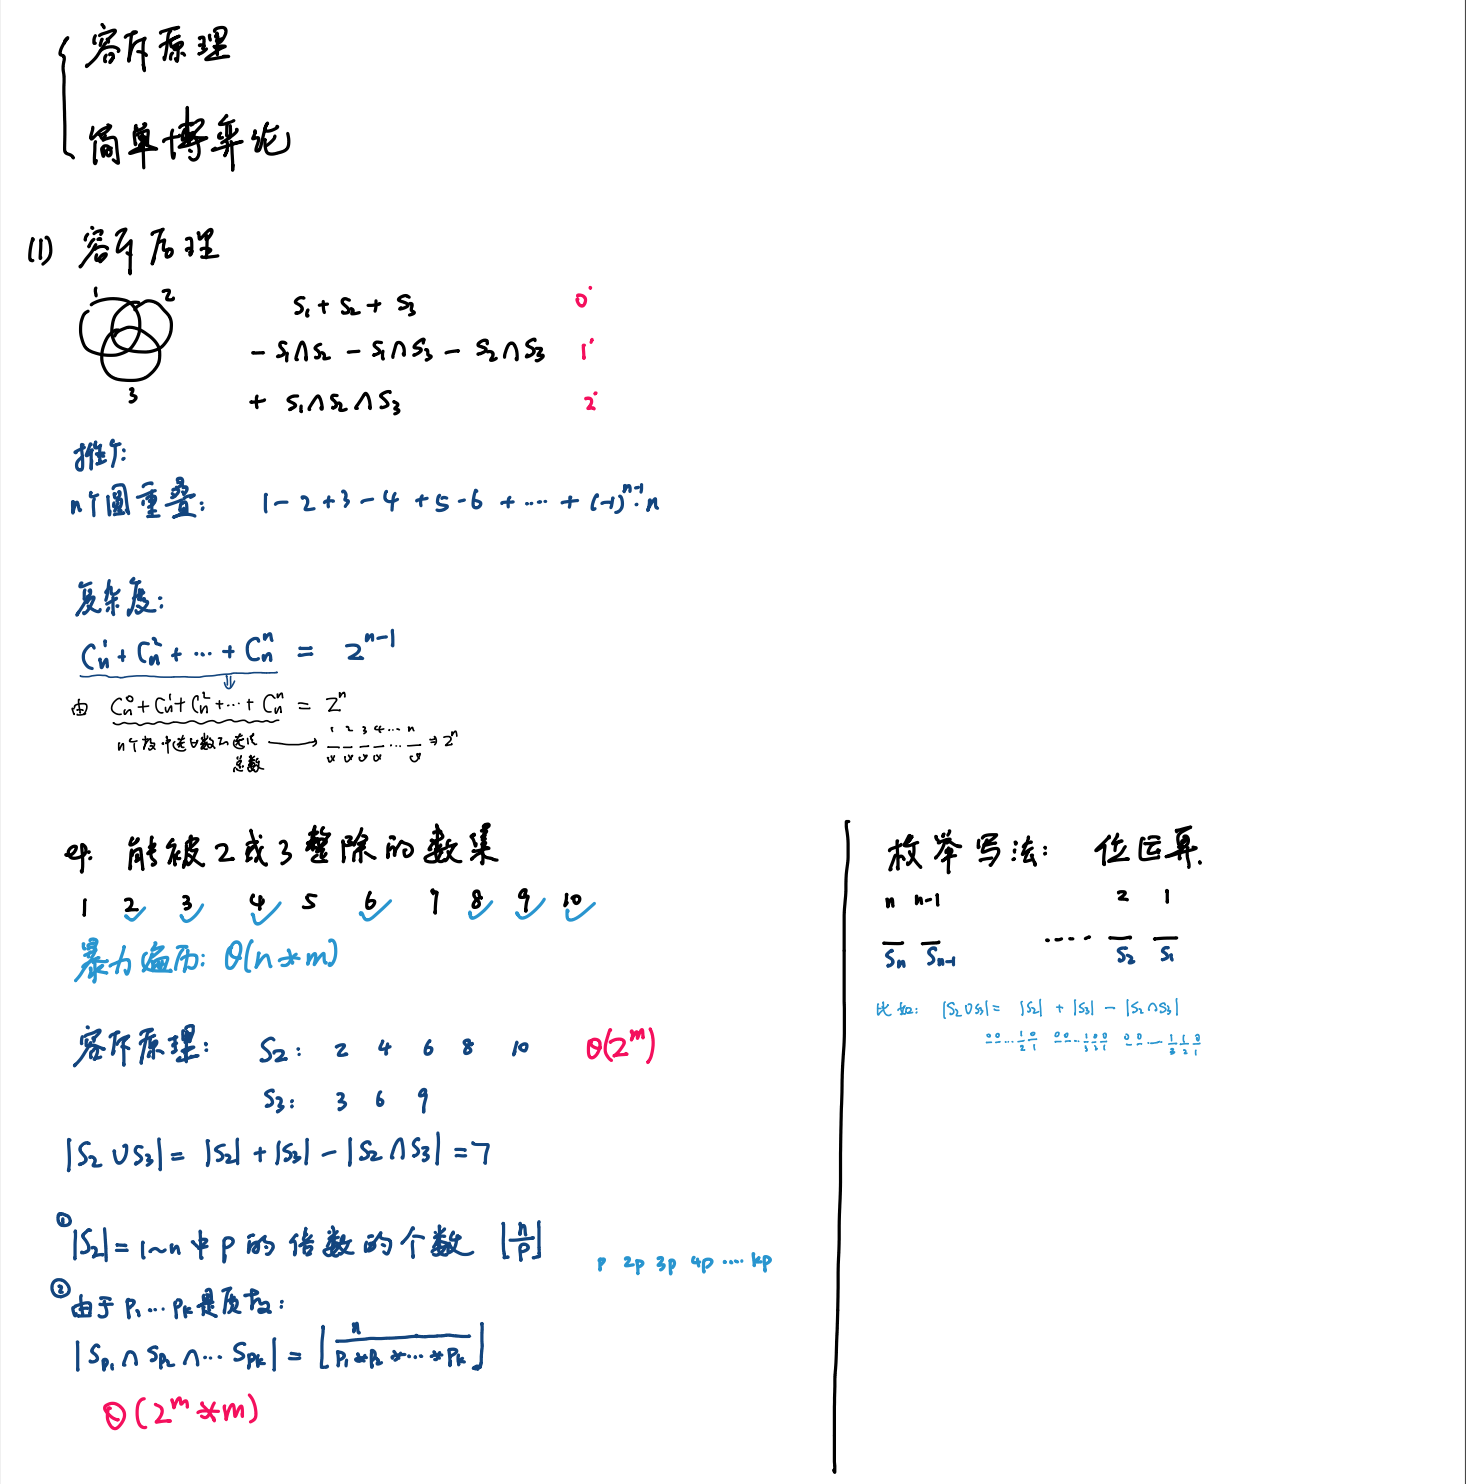 容斥原理
简单博弈论
(1) 容斥原理
1 2
3
S₁ + S₂ + S₃ 0
- S₁∩S₂ - S₁∩S₃ - S₂∩S₃ 1
+ S₁∩S₂∩S₃ 2
推广:
n个圆重叠: 1-2+3-4+5-6+····+(-1)ⁿ⁻¹·n
复杂度:
Cₙ¹+Cₙ²+···+Cₙⁿ = 2ⁿ⁻¹
⇓
由 Cₙ⁰+Cₙ¹+Cₙ²+···+Cₙⁿ = 2ⁿ
1 2 3 4 ··· n
n个数中选 → ··· ⇒ 2ⁿ
总数
eg. 能被2或3整除的数集
1 2 3 4 5 6 7 8 9 10
暴力遍历: O(n*m)
容斥原理: S₂: 2 4 6 8 10 O(2ᵐ)
S₃: 3 6 9
|S₂∪S₃| = |S₂|+|S₃|-|S₂∩S₃| = 7
① |S₂| = 1~n中p的倍数的个数 ⌊n/p⌋
p 2p 3p 4p ···· kp
② 由于P₁···Pₖ是质数:
|Sp₁∩Sp₂∩···Spₖ| = ⌊n/(P₁*P₂*···*Pₖ)⌋
O(2ᵐ*m)
枚举写法: 位运算.
n n-1 2 1
····
Sₙ Sₙ₋₁ S₂ S₁
比如: |S₂∪S₃| = |S₂| + |S₃| - |S₂∩S₃|
0 0 ··· 1 0 0 0 ··· 1 0 0 0 0 ··· 1 1 0
2 1 3 2 1 3 2 1